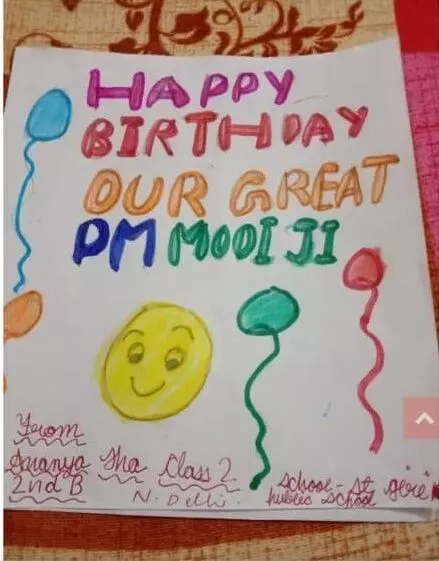 HAPPY
BIRTHDAY
OUR GREAT
PM MODI JI
From
Ananya Jha Class 2
2nd B N. Delhi.
School - St
public school